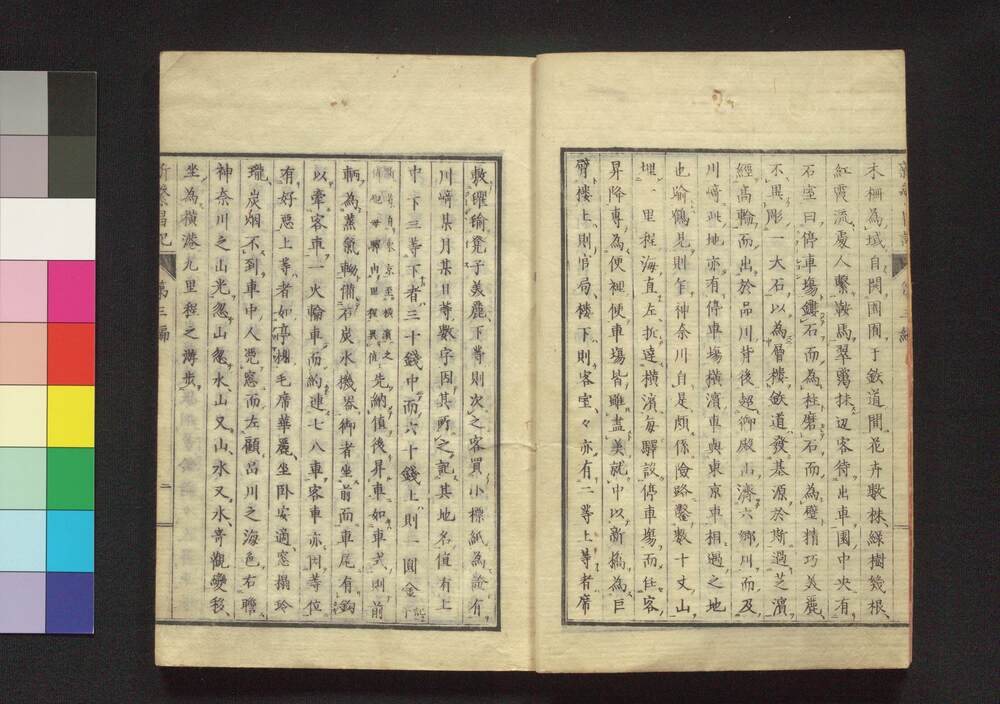 木柵為域自開園囿于鉄道間花卉數株緑樹幾根
紅霞流處人繫鞍馬翠靄抹辺客待出車園中央有
石室曰停車塲鏤石而為柱磨石而為壁精巧美麗
不異彫一大石以為層楼鉄道發基源於斯過芝濱
經高輪而出於品川背後超御殿山濟六鄉川而及
川﨑此地亦有停車塲横濱車與東京車相遇之地
也踰鶴見則乍神奈川自是頗係險路鑿數十丈山
埋一里程海直左折達横濱海驛設停車塲而任客
昇降專為便裡便車塲皆雖盡美就中以新橋為巨
擘楼上則官局楼下則客室々亦有二等上等者席
敷曜氍凳子美麗下等則次之客買小標紙為證有
川﨑某月某日等數字因其所之記其地名值有上
中下三等下者三十錢中而六十錢上則一圓金
先納值後昇車如車式則前
輌為蒸氣輌備石炭水機器御者坐前面車尾有鈎
以牽客車一火輪車而約連七八車客車亦因等位
有好惡上等者如亭榭毛席華麗坐卧安適窓搨玲
瓏炭烟不到車中人凭窓而左顧品川之海色右瞻
神奈川之山光忽山忽水山又山水又水奇觀變移
坐為横濱九里程之游歩
新繁昌記
第三編
二